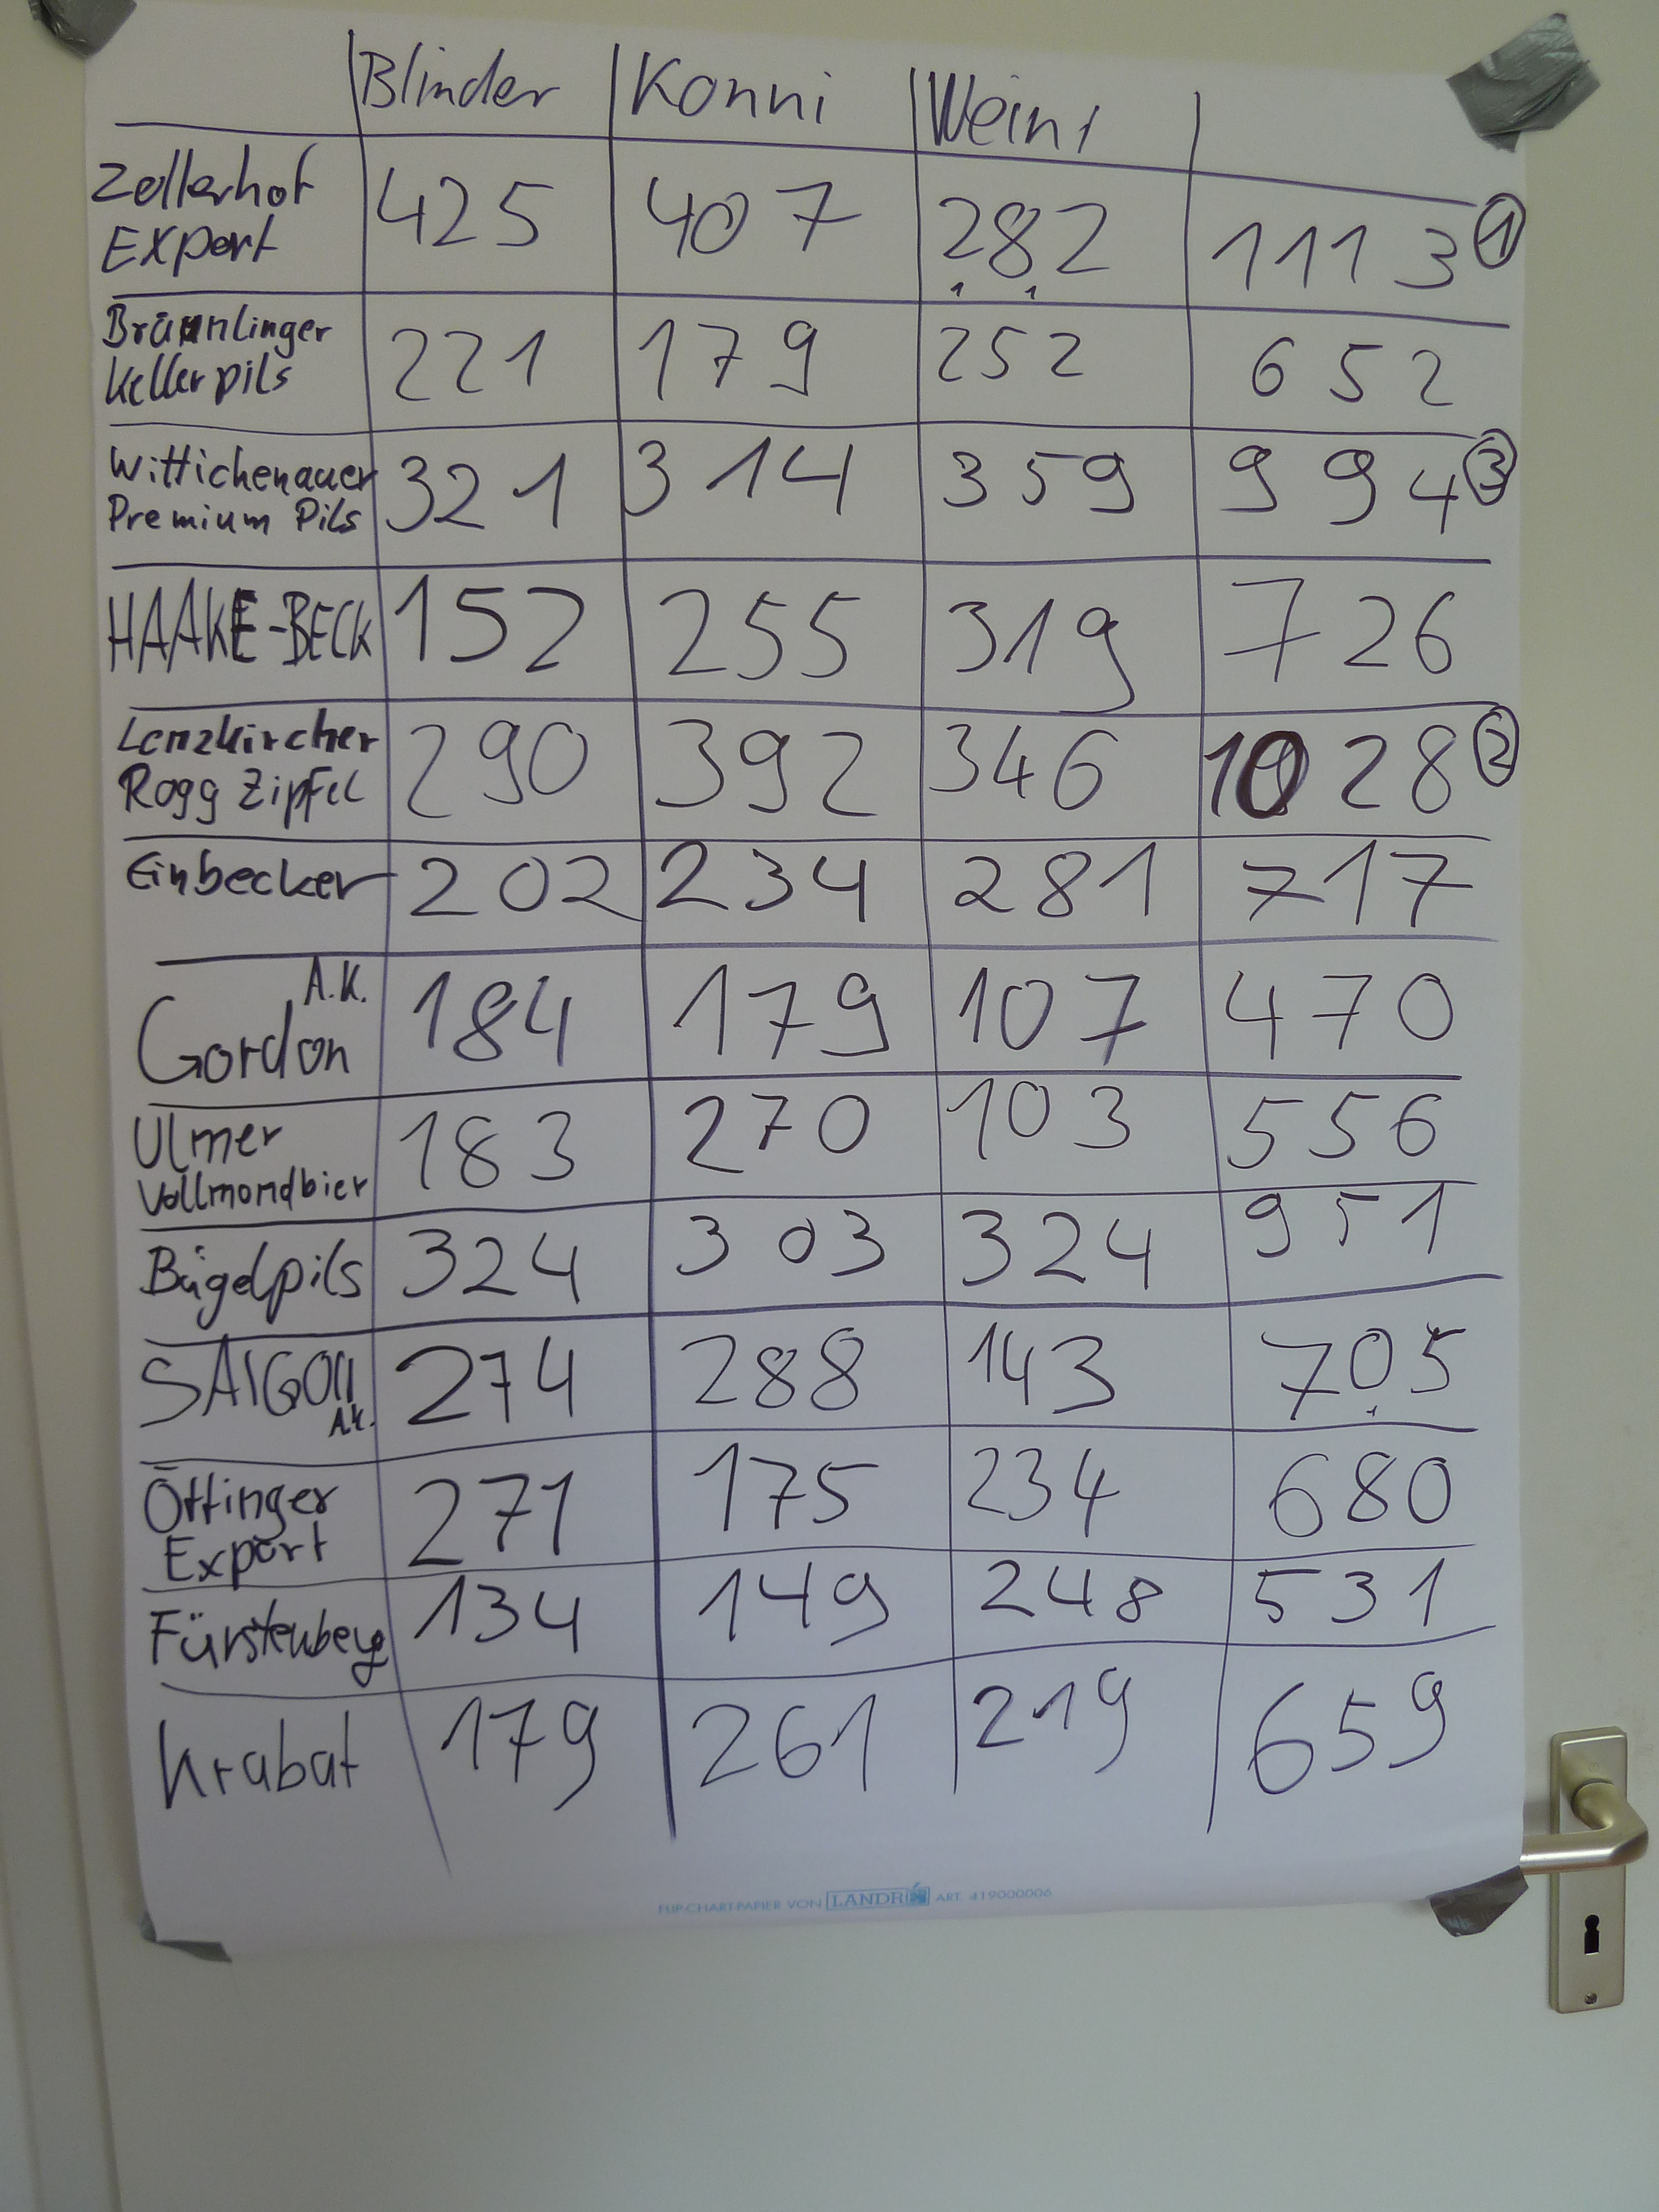 Blinder Konni Weint
Zollerhof
Export 425 407 282 1113 1
Bräunlinger
Kellerpils 221 179 252 652
Wittichenauer
Premium Pils 321 314 359 994 3
HAAKE-BECK 152 255 319 726
Lenzkircher
Rogg Zipfel 290 392 346 1028 2
Einbecker 202 234 281 717
A.K.
Gordon 184 179 107 470
Ulmer
Vollmondbier 183 270 103 556
Bügelpils 324 303 324 951
SAIGON
A.K. 274 288 143 705
Öttinger
Export 271 175 234 680
Fürstenberg 134 149 248 531
Krabat 179 261 219 659
FLIP-CHART-PAPIER VON LANDRÉ ART. 419000006